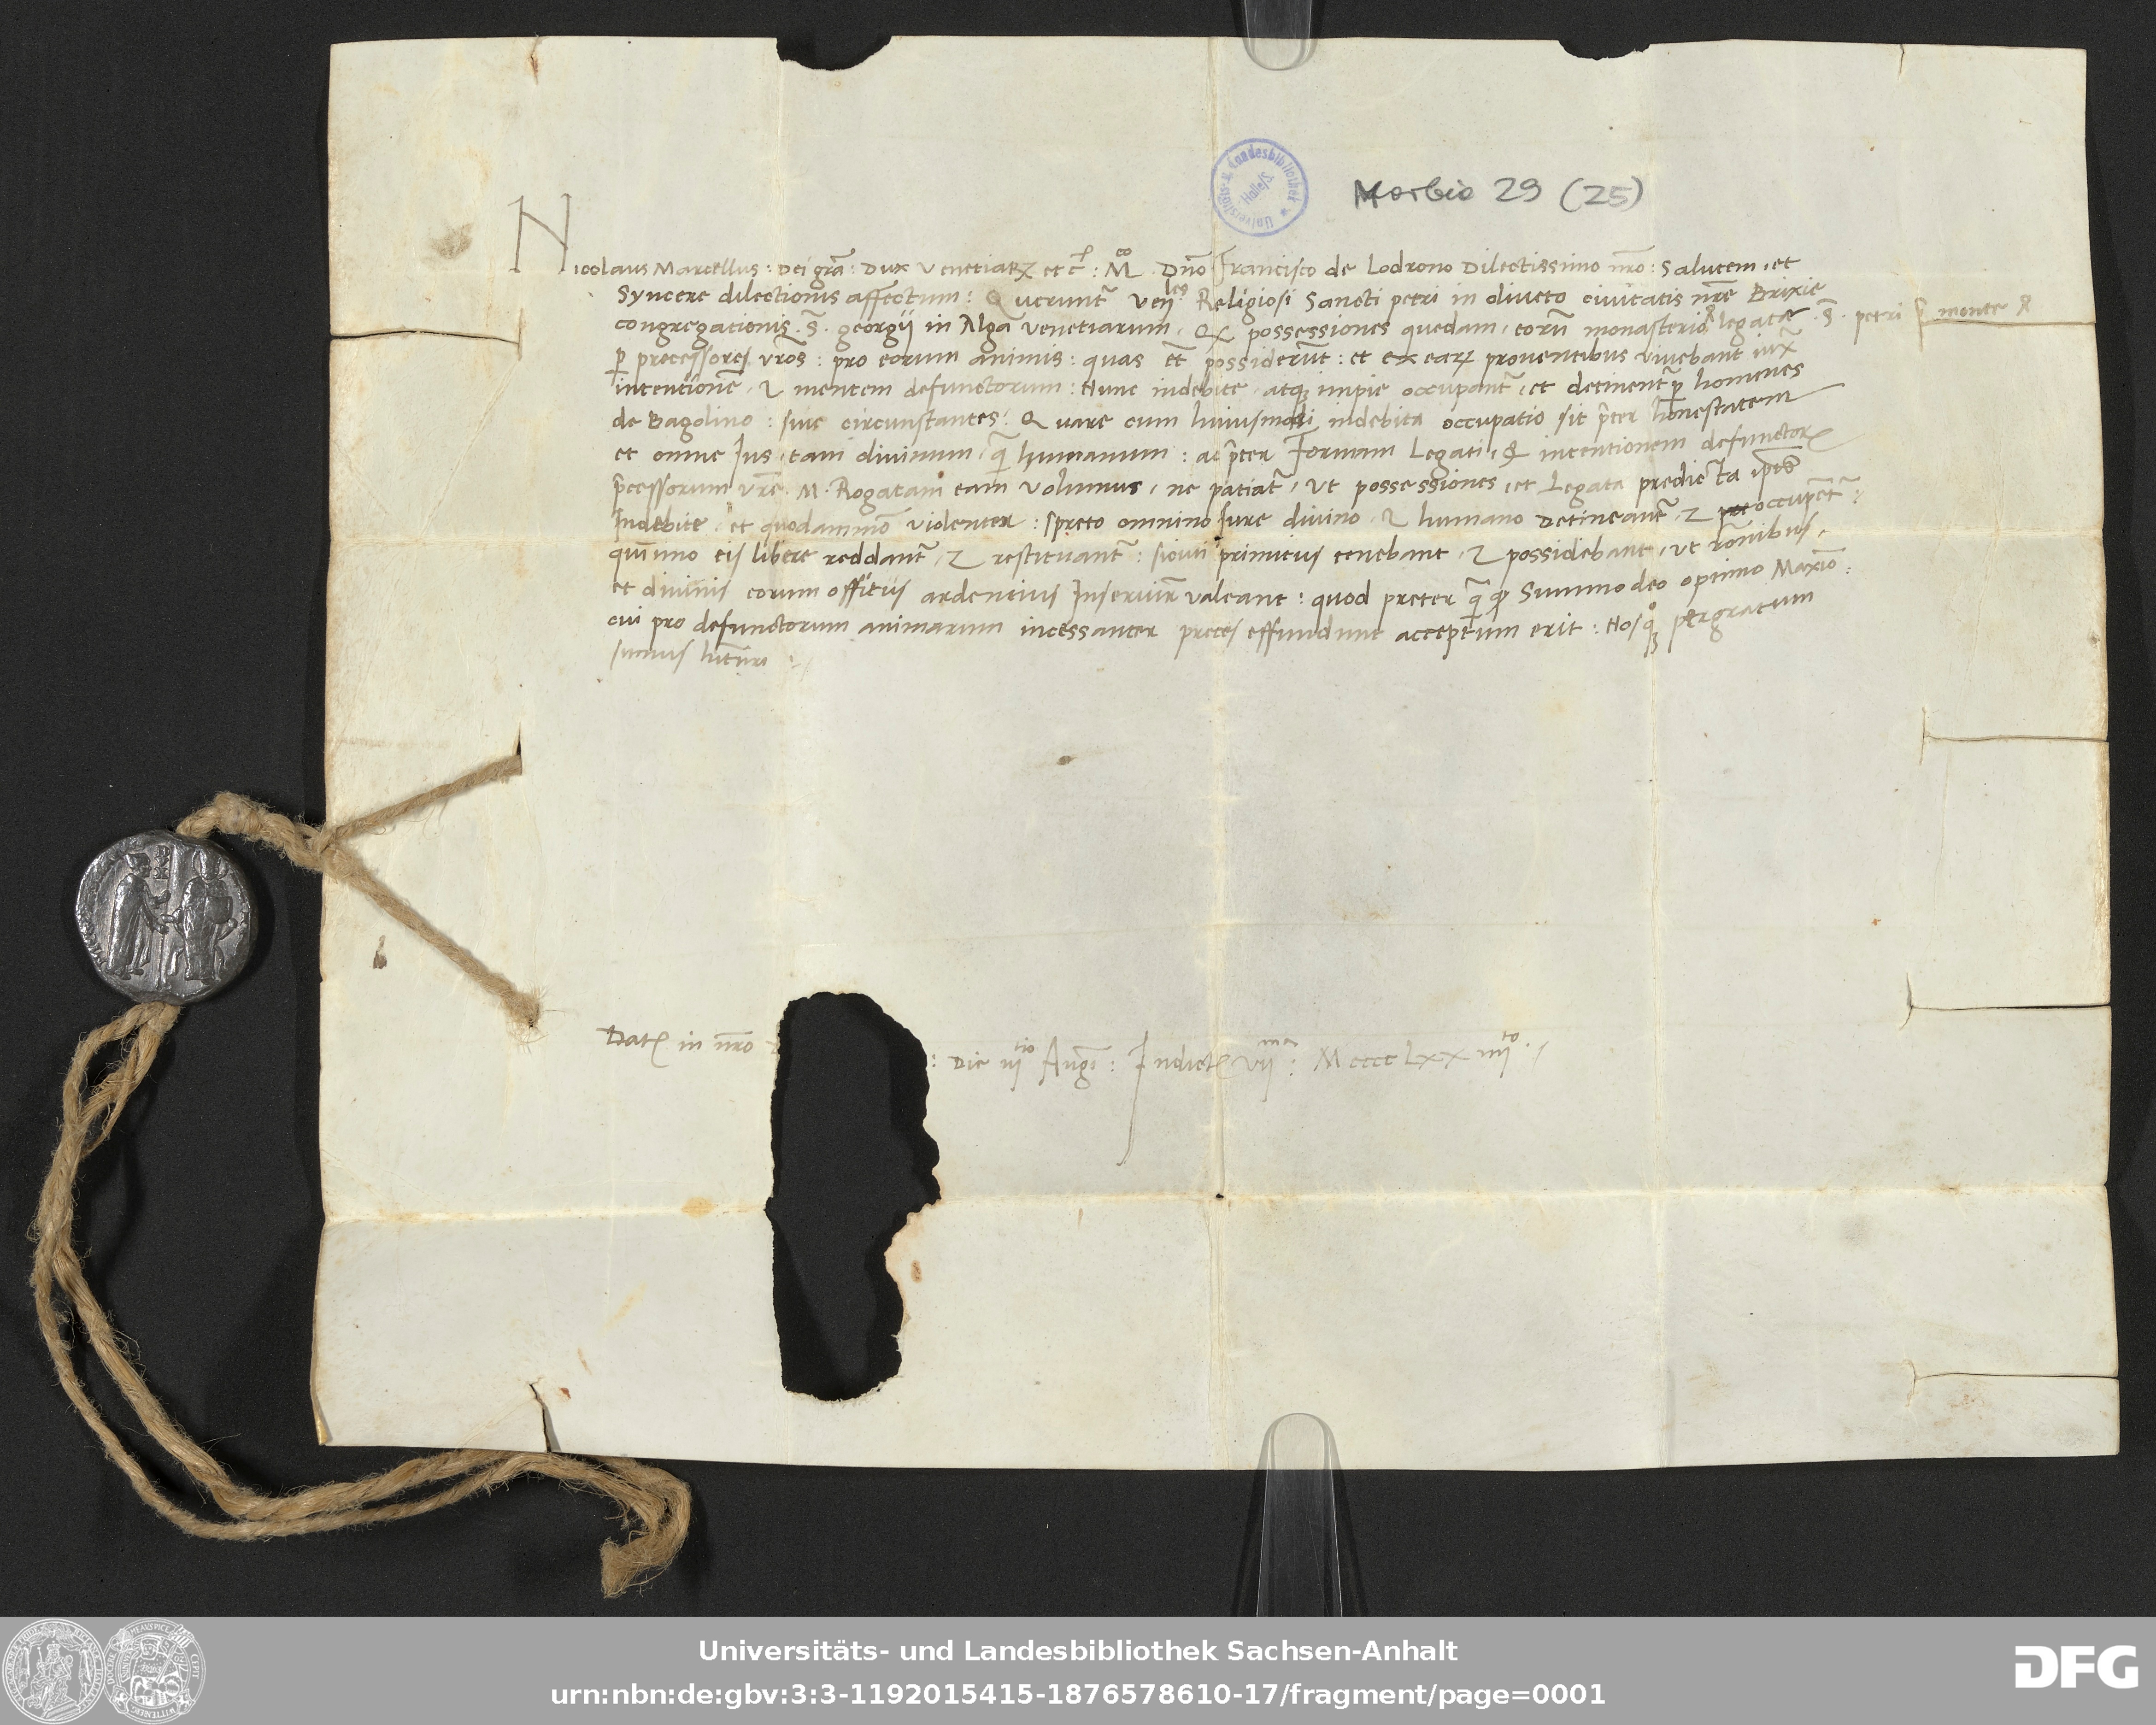 Universitäts- u. Landesbibliothek
Halle/S.
Morbio 29 (25)
Nicolaus Marcellus: Dei gr̃a: Dux Venetiaꝝ etc̃: M.co Dño Francisco de Lodrono Dilectissimo nr̃o: Salutem, et
Syncere dilectionis affectum: Querunt̃ Ven.les Religiosi Sancti petri in oliveto civitatis nr̃e Brixie
congregationis .S̃. georgij in Alga venetiarum, Qđ possessiones quedam, eorũ monasterio legatæ .S̃. petri monte
ꝑ precessores vr̃os: pro eorum animis: quas et̃ possiderũt: et ex eaꝝ proventibus vivebant iux̃
intentionẽ, & mentem defunctorum: Nunc indebite, atqꝫ impie occupant̃, et detinent̃ ꝑ homines
de Bagolino: sive circunstantes: Quare cum huiusmodi indebita occupatio sit p̃ter honestatem
et omne Ius, tam divinum, q̃ humanum: ac p̃ter Formam Legati, & intentionem defunctoꝝ
p̃cessorum vr̃e. M. Rogatam eam volumus, ne patiat̃, ut possessiones, et Legata predicta ip̃os
Indebite, et quodammõ violenter: spreto omnino Iure divino, & humano Detineant̃, & occupent̃:
quiñimo eis libere reddant̃, & restituant̃: sicuti primitius tenebant, & possidebant, ut r̃onibus,
et divinis eorum offitijs ardentius Inservir̃ valeant: quod preter q̃ ꝙ Summo deo optimo Maxiõ:
cui pro defunctorum animarum incessanter preces effundunt acceptum erit: Nosqꝫ pergratum
sumus hitũri
Datꝭ in nr̃o
: Die iij.tio Augi: Indictꝭ vij.ma: Mcccc Lxx iiij.to
Universitäts- und Landesbibliothek Sachsen-Anhalt
urn:nbn:de:gbv:3:3-1192015415-1876578610-17/fragment/page=0001
DFG